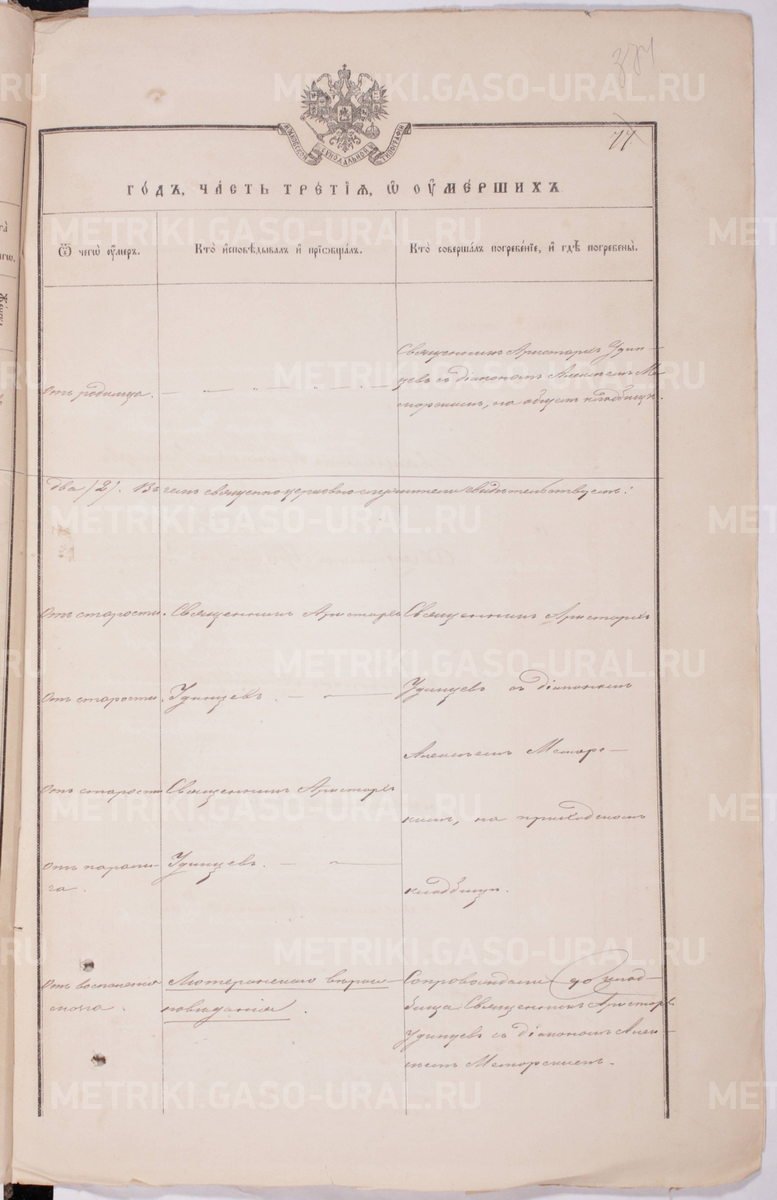 374
77
МОСКОВСКОЙ СѴНОДАЛЬНОЙ ТИПОГРАФІИ
ГО́ДЪ, ЧА́СТЬ ТРЕ́ТІѦ, Ѡ҆ ОУ҆МЕ́РШИХЪ
Ѿ чегѡ̀ ѹ҆́меръ.
Кто̀ и҆сповѣ́дывалъ и҆ прїѡбща́лъ.
Кто̀ соверша́лъ погребе́нїе, и҆ гдѣ̀ погребены̀.
Отъ родимца.
Священникъ Аристархъ Удин-
цевъ съ діакономъ Алексѣемъ Ме-
морскимъ, на общемъ кладбищѣ.
два /2/. Въ чемъ священно церковно служители свидѣтельствуемъ:
Отъ старости.
Священникъ Аристархъ
Священникъ Аристархъ
Отъ старости.
Удинцевъ.
Удинцевъ съ діакономъ
Алексѣемъ Мемор-
Отъ старости
Священникъ Аристархъ
скимъ, на приходскомъ
Отъ парали-
ча.
Удинцевъ.
кладбищѣ.
Отъ воспаленія
мозга.
Лютеранскаго вѣроис-
повѣданія.
Сопровождали до клад-
бища Священникъ Аристархъ
Удинцевъ съ діакономъ Алек-
сѣемъ Меморскимъ.
METRIKI.GASO-URAL.RU